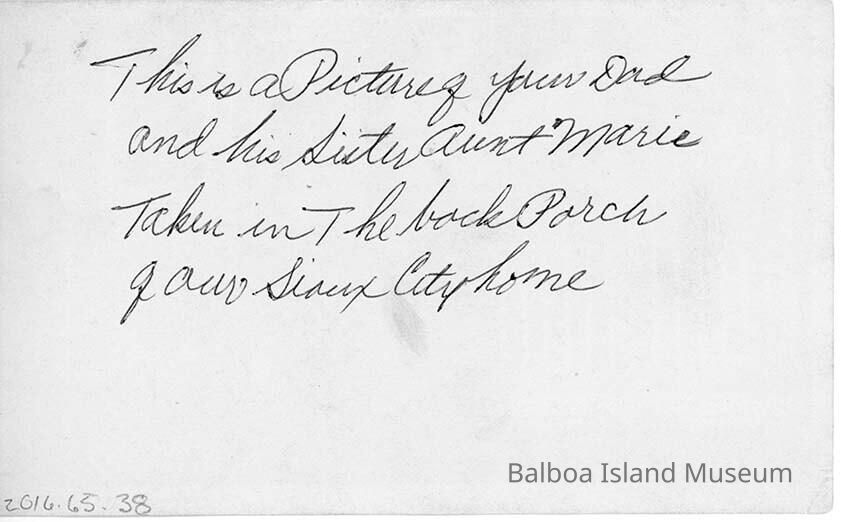 This is a Picture of your Dad
and his Sister Aunt Marie
Taken in The back Porch
of our Sioux City home
Balboa Island Museum
2016.65.38